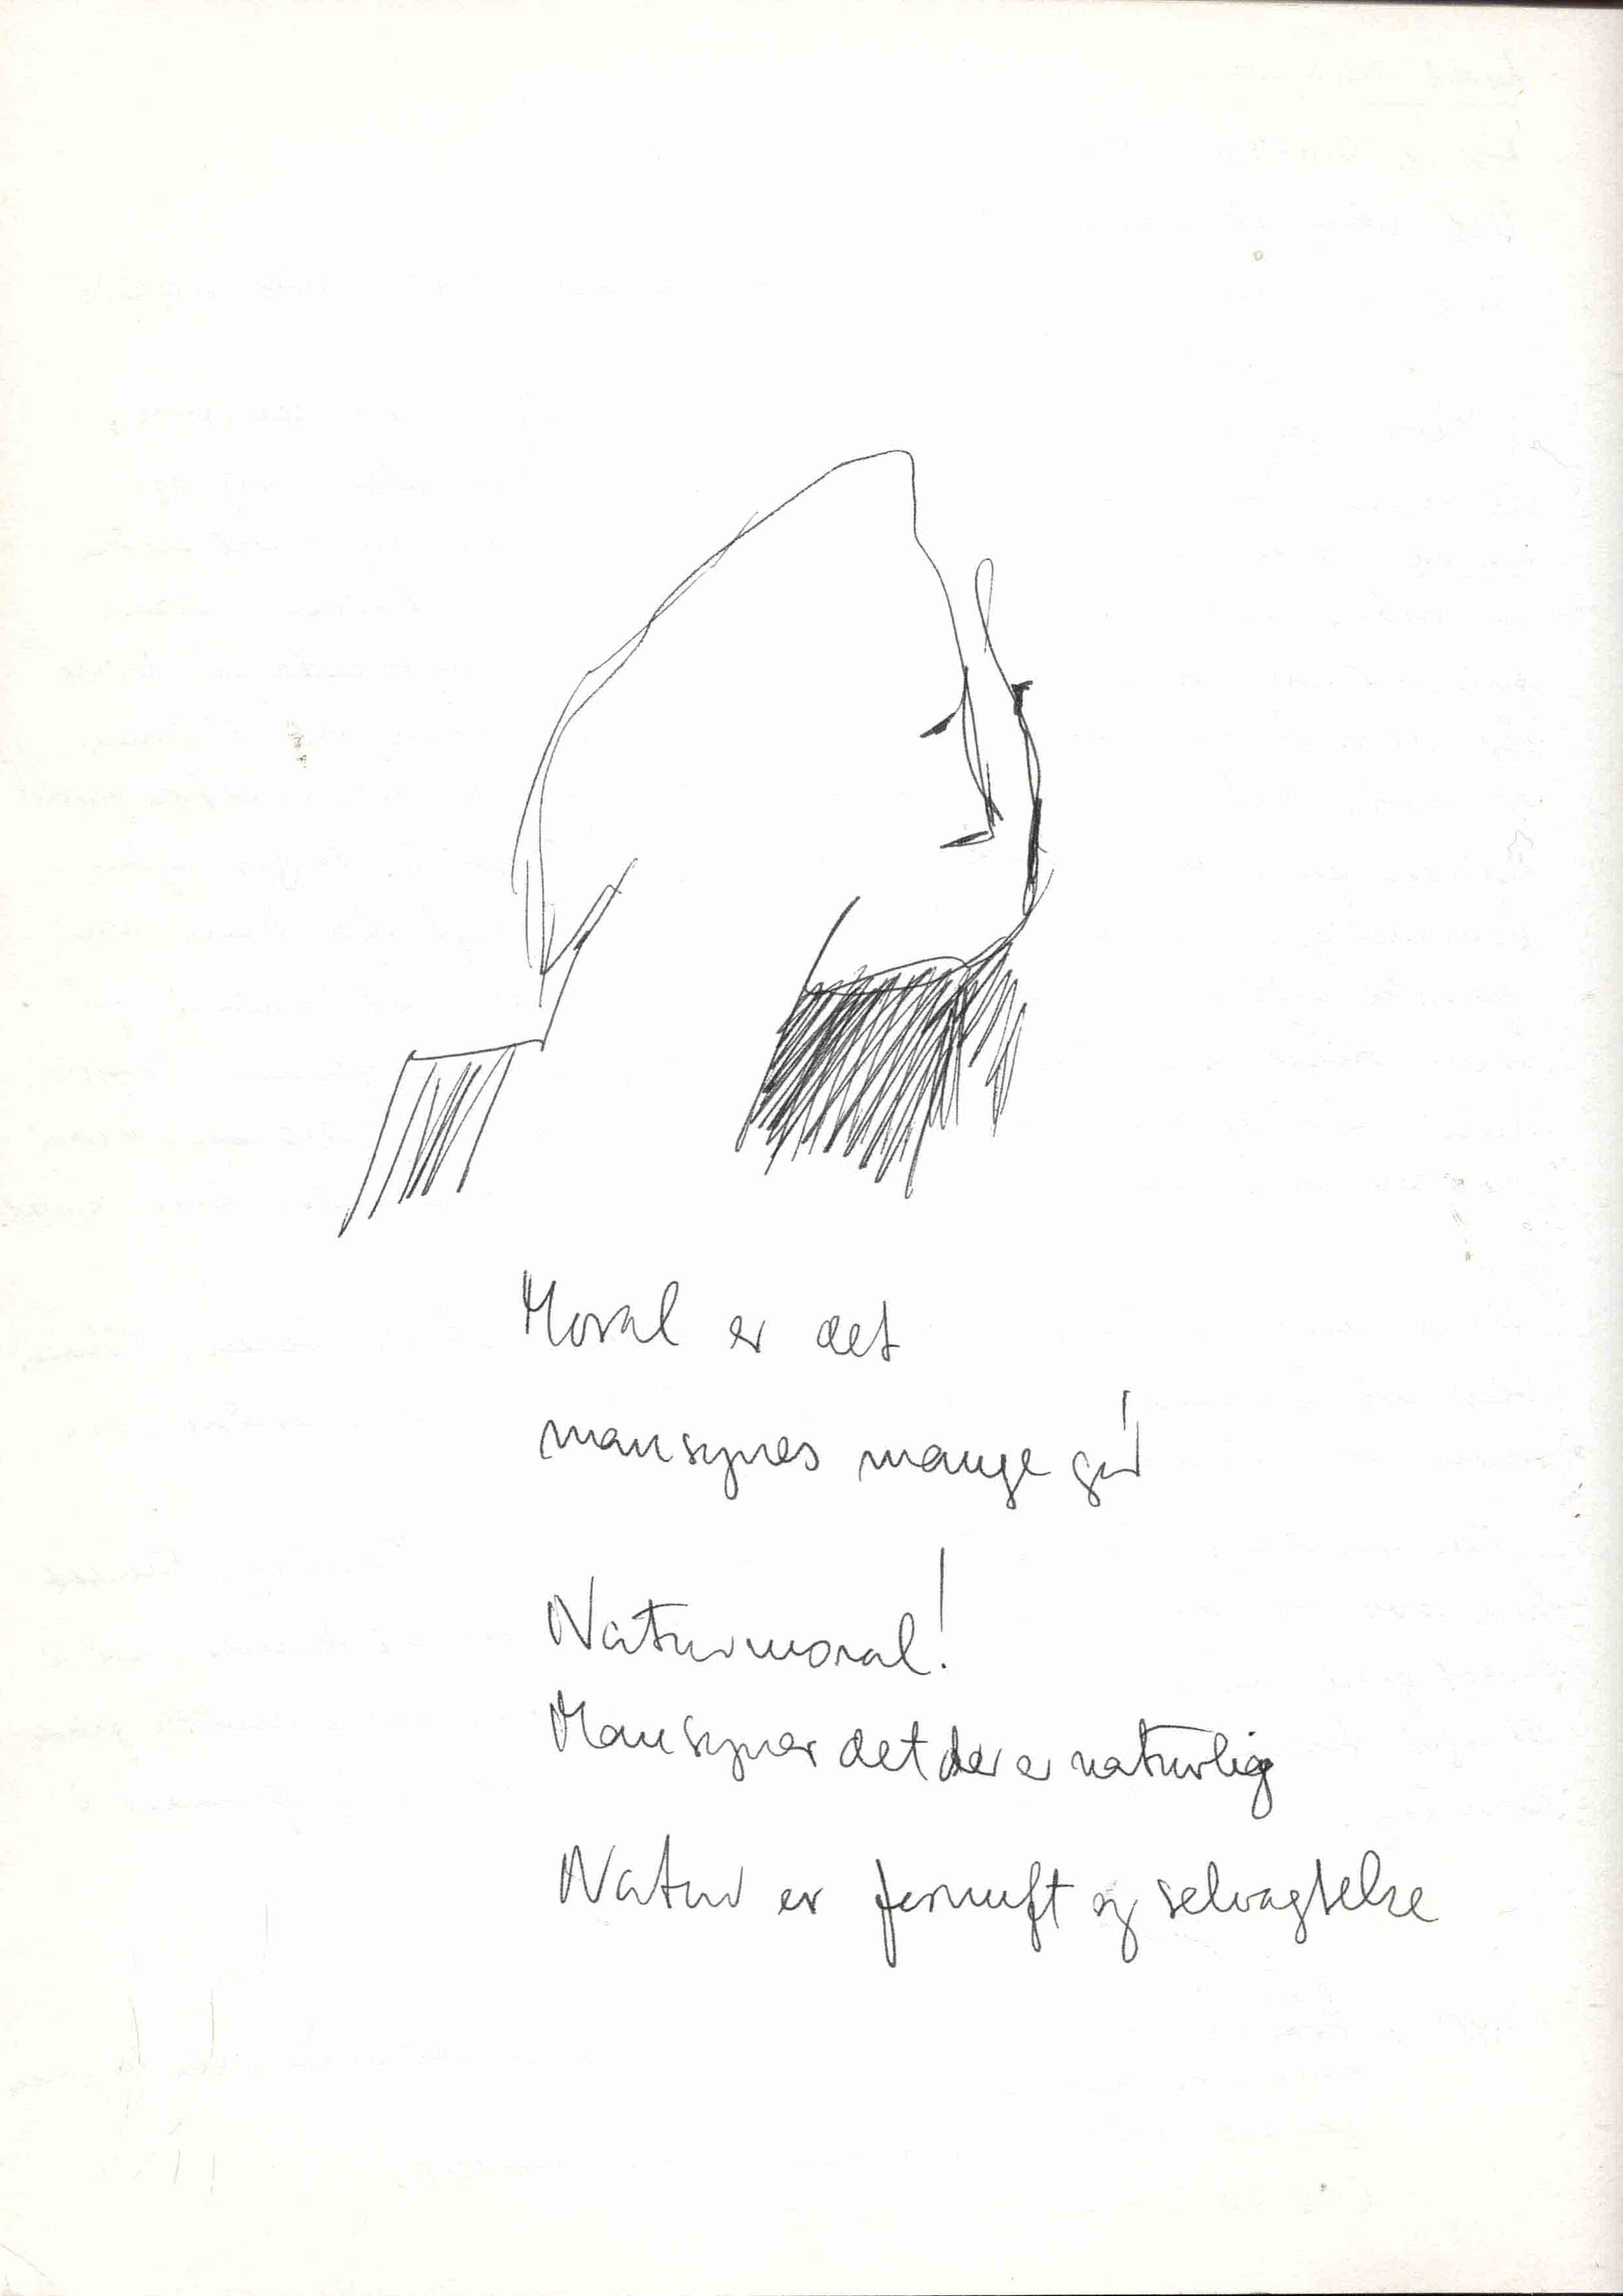 Moral er det
man synes mange gør
Naturmoral!
Man synes det der er naturlig
Natur er fornuft og selvagtelse